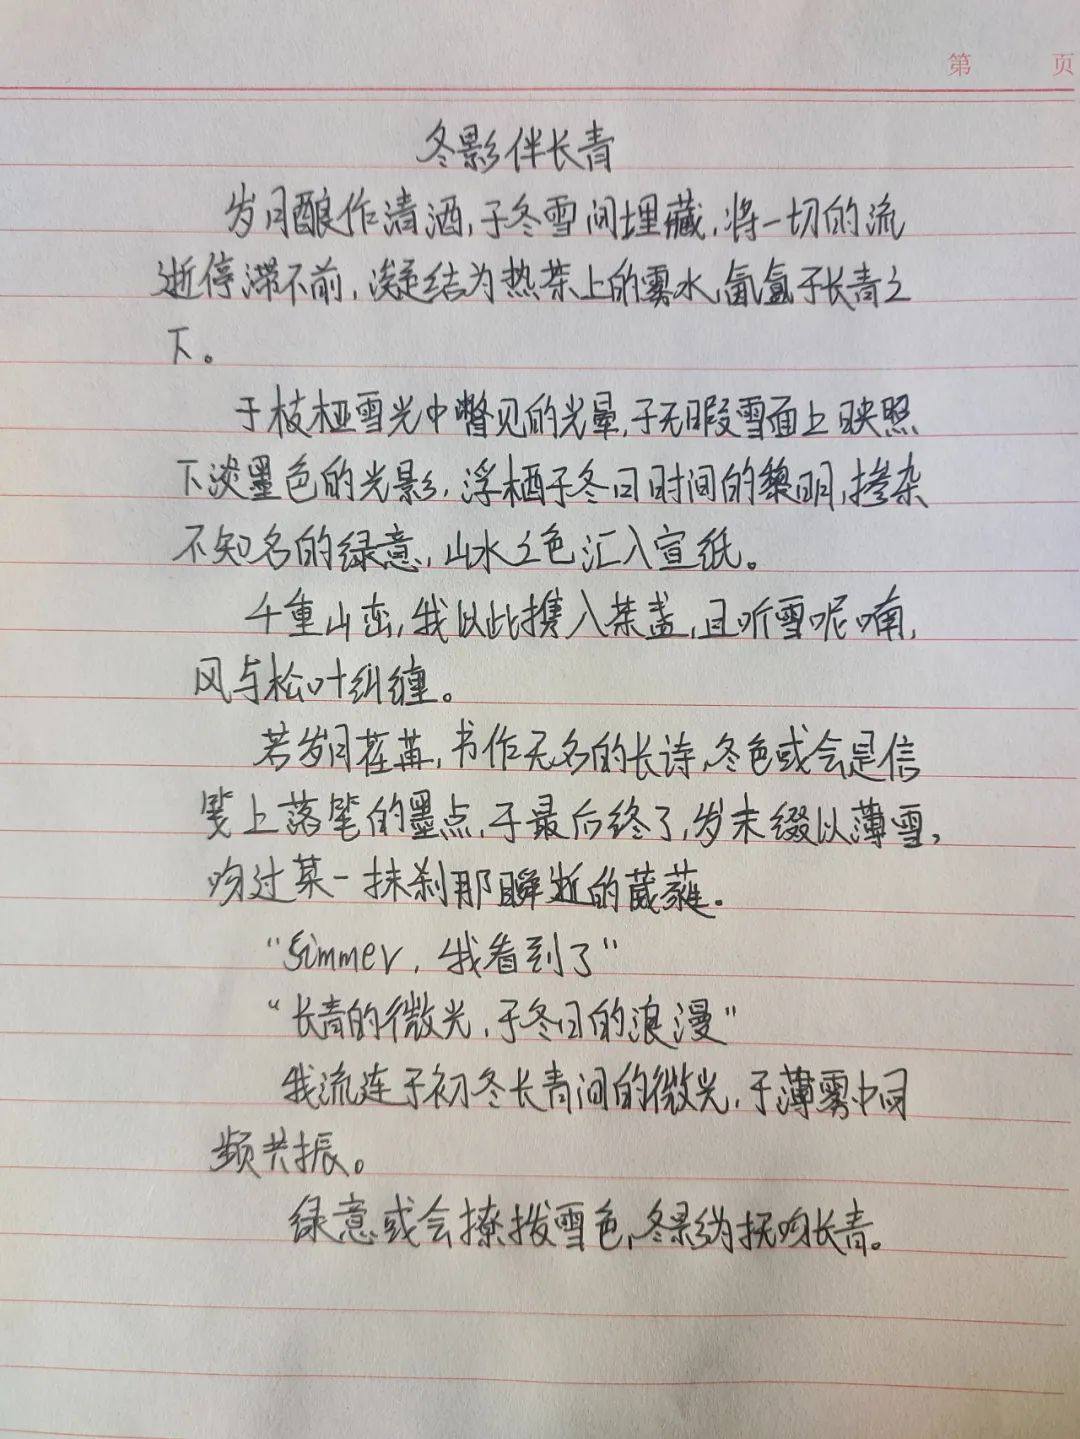 第 页
冬影伴长青
岁月酿作清酒,于冬雪间埋藏,将一切的流
逝停滞不前,凝结为热茶上的雾水,氤氲于长青之
下。
于枝桠雪光中瞥见的光晕,于无暇雪面上映照
下淡墨色的光影,浮栖于冬日时间的黎明,掺杂
不知名的绿意,山水之色汇入宣纸。
千重山峦,我以此携入茶盏,且听雪呢喃,
风与松叶纠缠。
若岁月荏苒,书作无名的长诗,冬色或会是信
笺上落笔的墨点,于最后终了,岁末缀以薄雪,
吻过某一抹刹那瞬逝的葳蕤。
“Simmer,我看到了”
“长青的微光,于冬日的浪漫”
我流连于初冬长青间的微光,于薄雾中同
频共振。
绿意或会撩拨雪色,冬影为抚吻长青。